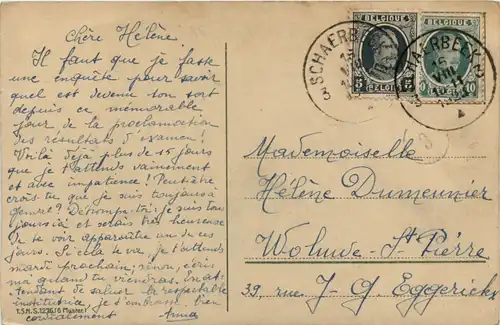 Chère Hélène
Il faut que je fasse
une enquête pour savoir
quel est devenu ton sort
depuis ce mémorable
jour de la proclamation
des résultats d'examen!
Voilà déjà plus de 15 jours
que je t'attends vainement
et avec impatience! Peut-être
crois-tu que je suis toujours à
Détrompe-toi: je suis tou-
jours ici et serais très heureuse
de te voir apparaître un de ces
jours. Si cela te va, je t'attends
mardi prochain, sinon, écris
moi quand tu viendras. En at-
tendant de saluer la respectable
institutrice, je t'embrasse bien
cordialement Anna
T.S.N.S. 1236/6
BELGIQUE
BELGIQUE
SCHAERBEEK
3
SCHAERBEEK 3
15
VIII
10
Mademoiselle
Hélène Dumeunier
Woluwe-St Pierre
39, rue J-G. Eggerickx